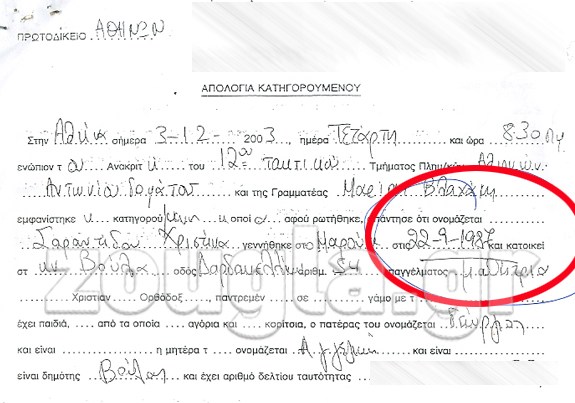 ΠΡΩΤΟΔΙΚΕΙΟ ΑΘΗΝΩΝ
ΑΠΟΛΟΓΙΑ ΚΑΤΗΓΟΡΟΥΜΕΝΟΥ
Στην Αθήνα σήμερα 3-12- 2003, ημέρα Τετάρτη και ώρα 8.30 πμ
ενώπιον τ ου Ανακριτ ή του 12ου τακτικού Τμήματος Πλημ/κών Αθηνών
Αντωνίου και της Γραμματέας Μαρίας Βλαχάκη
εμφανίστηκε η κατηγορουμένη η οποί α αφού ρωτήθηκε, απάντησε ότι ονομάζεται
Σαραντίδου Χριστίνα γεννήθηκε στο Μαρούσι στις 22-9-1987 και κατοικεί
στ ην Βούλα οδός Δαρδανελλίων αριθμ. 54 επαγγέλματος μαθήτρια
Χριστιαν Ορθόδοξ παντρεμέν σε γάμο με τ
έχει παιδιά, από τα οποία αγόρια και κορίτσια, ο πατέρας του ονομάζεται Γεώργιος
και είναι η μητέρα τ ονομάζεται Αγγελική και είναι
είναι δημότης Βούλας και έχει αριθμό δελτίου ταυτότητας
zougla.gr